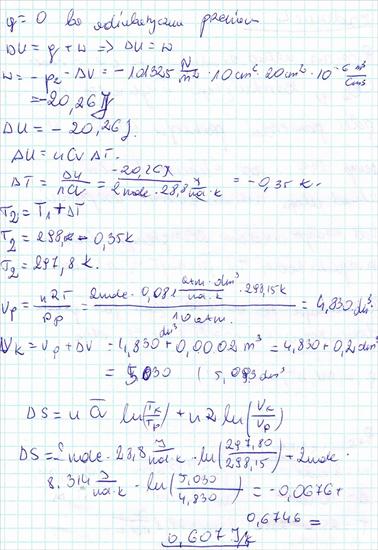 q = 0 bo adiabatyczna przemiana
ΔU = q + w => ΔU = w
w = - pz · ΔV = - 101325 N/m² · 10 cm² · 20 cm · 10⁻⁶ m³/cm³
= -20,26 J
ΔU = - 20,26 J.
ΔU = n Cv ΔT.
ΔT = ΔU/nCv = -20,26 J / 2 mole · 28,8 J/mol·K = -0,35 K.
T2 = T1 + ΔT
T2 = 298,2 - 0,35K
T2 = 297,8 K.
Vp = nRT/pp = 2 mole · 0,082 atm·dm³/mol·K · 298,15K / 10 atm. = 4,830 dm³
Vk = Vp + ΔV = 4,830 dm³ + 0,0002 m³ = 4,830 + 0,2 dm³
= 5,030
ΔS = n Cv ln(Tk/Tp) + n R ln(Vk/Vp)
ΔS = 2 mole · 28,8 J/mol·K · ln(297,80/298,15) + 2 mole ·
8,314 J/mol·K · ln(5,030/4,830) = -0,0676 +
0,6746 =
0,607 J/K